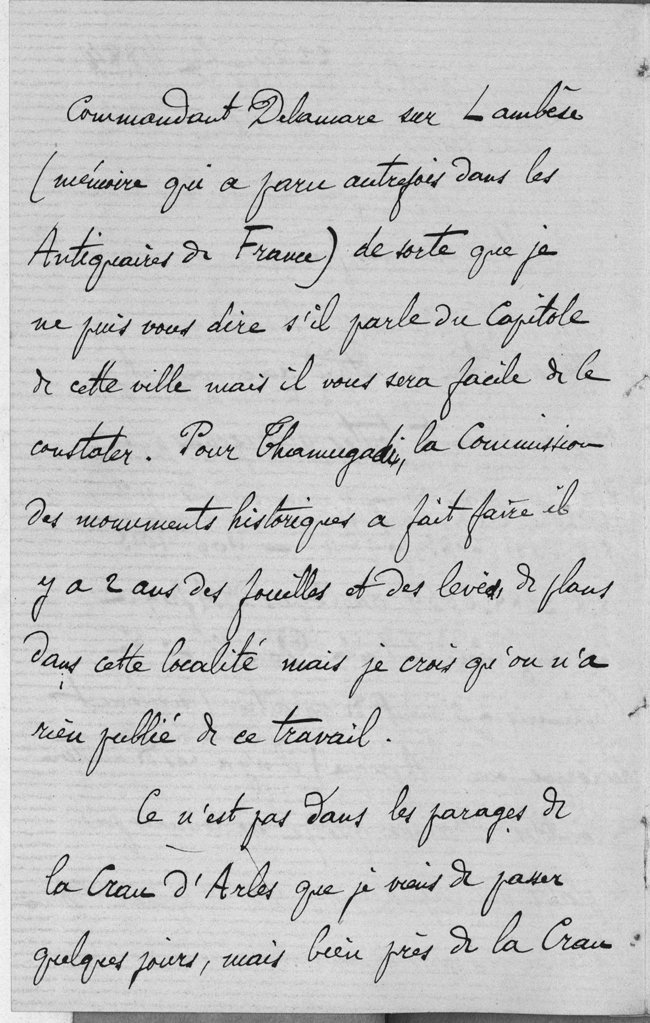 Commandant Delamare sur Lambèse
(mémoire qui a paru autrefois dans les
Antiquaires de France) de sorte que je
ne puis vous dire s'il parle du Capitole
de cette ville mais il vous sera facile de le
constater. Pour Thamugadi, la Commission
des monuments historiques a fait faire il
y a 2 ans des fouilles et des levés, de plans
dans cette localité mais je crois qu'on n'a
rien publié de ce travail.
Ce n'est pas dans les parages de
la Crau d'Arles que je viens de passer
quelques jours, mais bien près de la Crau